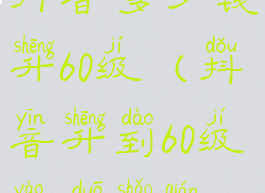 多少钱
shēng jí dǒu
升60级（抖
yīn shēng dào jí
音升到60级
yào duō shǎo qián